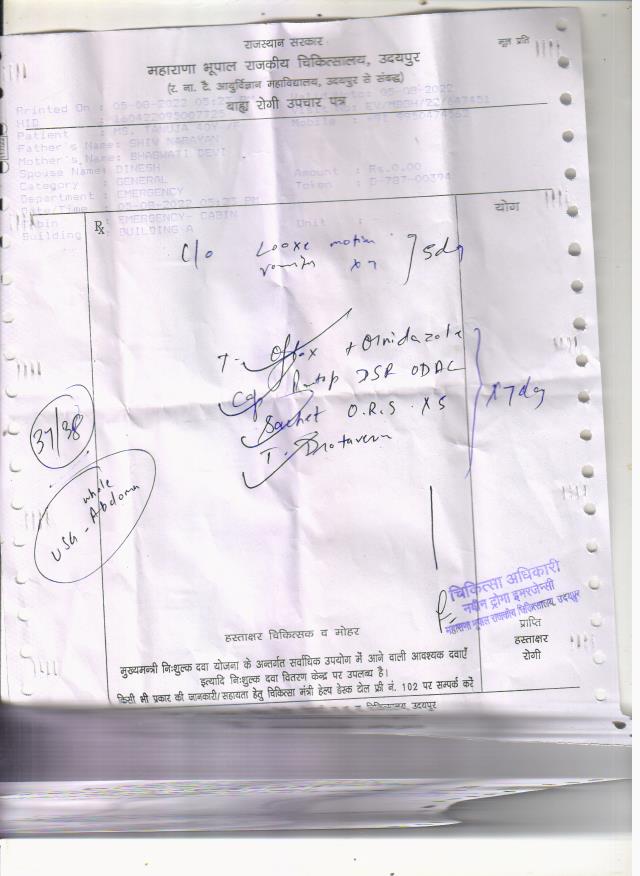 राजस्थान सरकार
मूल प्रति
महाराणा भूपाल राजकीय चिकित्सालय, उदयपुर
(र. ना. टै. आयुर्विज्ञान महाविद्यालय, उदयपुर से संबद्ध)
बाह्य रोगी उपचार पत्र
Printed On : 05-08-2022
05-08-2022
HID
Patient : MS. TANUJA
Mobile :
Father's Name: SHIV NARAYAN
Mother's Name: BHAGWATI DEVI
Spouse Name: DINESH
Amount : Rs.0.00
Category : GENERAL
Token :
Department : EMERGENCY
Date/Time : 05-08-2022 05:27 PM
Cabin : EMERGENCY- CABIN
Unit : -
Building : BUILDING-A
Rx
योग
C/o Looxe motion
5 day
T. Oflox + Ornidazole
Cap Pantop DSR ODAC
x 7 day
Sachet O.R.S x5
T. Drotaverin
37/38
USG - whole Abdomen
चिकित्सा अधिकारी
महाराणा भूपाल राजकीय चिकित्सालय, उदयपुर
प्राप्ति
हस्ताक्षर
रोगी
हस्ताक्षर चिकित्सक व मोहर
मुख्यमन्त्री निःशुल्क दवा योजना के अन्तर्गत सर्वाधिक उपयोग में आने वाली आवश्यक दवाएँ
इत्यादि निःशुल्क दवा वितरण केन्द्र पर उपलब्ध है।
किसी भी प्रकार की जानकारी/सहायता हेतु चिकित्सा मंत्री हेल्प डेस्क टोल फ्री नं. 102 पर सम्पर्क करें
चिकित्सालय, उदयपुर